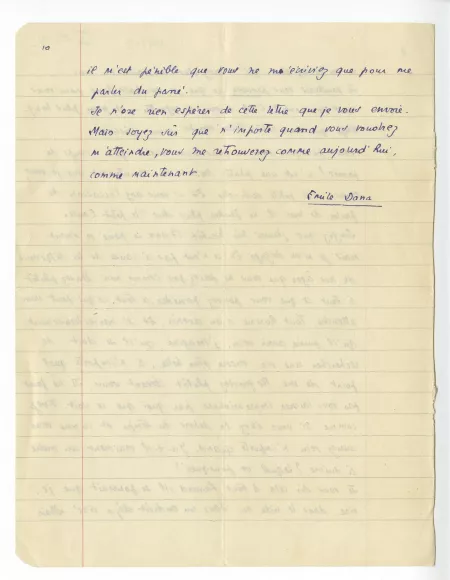 10
il m'est pénible que vous ne m'écriviez que pour me
parler du passé.
Je n'ose rien espérer de cette lettre que je vous envoie.
Mais soyez sûr que n'importe quand vous voudrez
m'atteindre, vous me retrouverez comme aujourd'hui,
comme maintenant.
Emile Dana